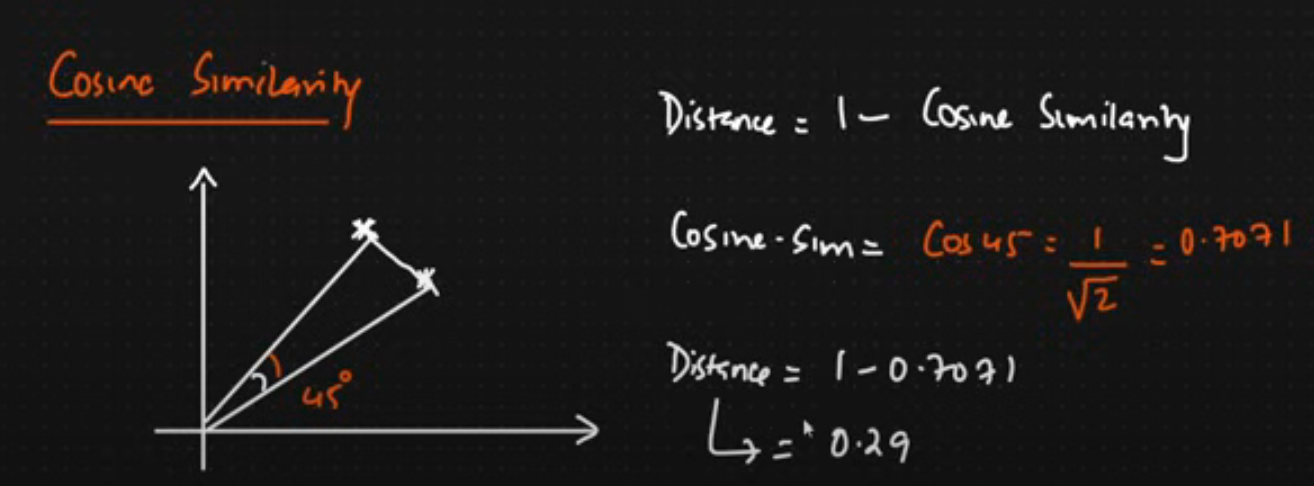 Cosine Similarity
Distance = 1 - Cosine Similarity
Cosine-Sim = Cos 45 = 1/√2 = 0.7071
45°
Distance = 1 - 0.7071
↳ = 0.29